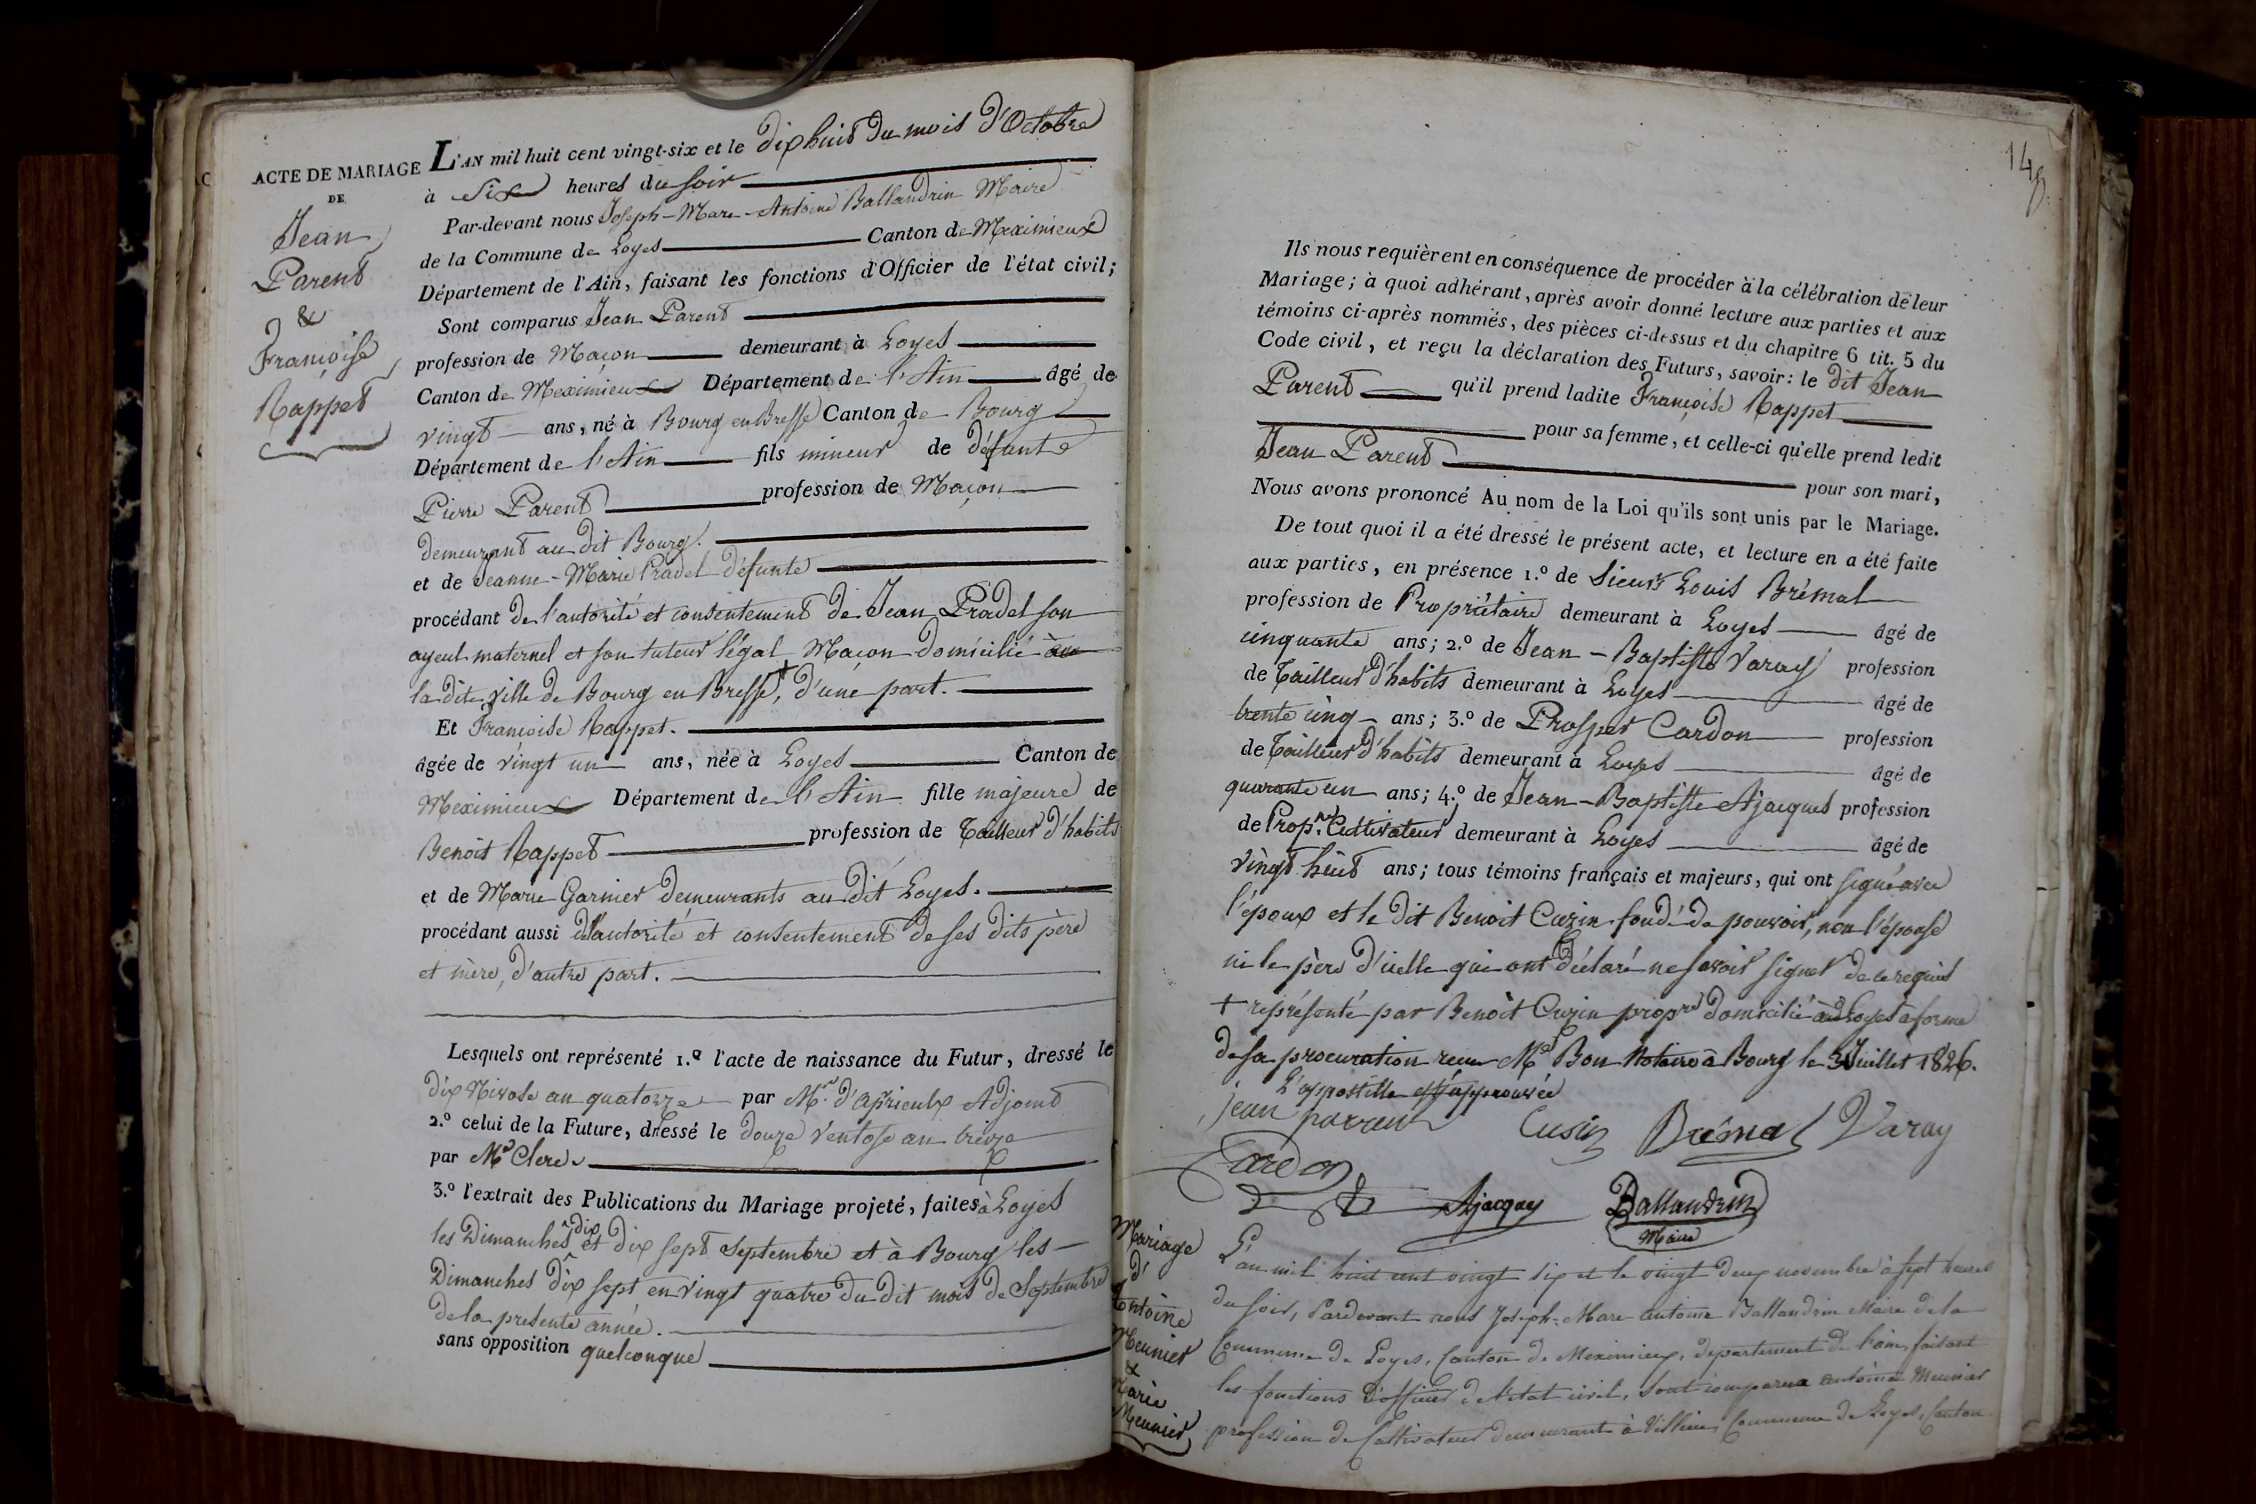 ACTE DE MARIAGE
DE
Jean
Parent
&
Françoise
Rappet
L'AN mil huit cent vingt-six et le dix huit du mois d'Octobre
à Six heures du soir
Par-devant nous Joseph-Marc-Antoine Ballandrin Maire
de la Commune de Loyes Canton de Meximieux
Département de l'Ain, faisant les fonctions d'Officier de l'état civil;
Sont comparus Jean Parent
profession de Maçon demeurant à Loyes
Canton de Meximieux Département de l'Ain âgé de
vingt ans, né à Bourg en Bresse Canton de Bourg
Département de l'Ain fils mineur de défunt
Pierre Parent profession de Maçon
demeurant au dit Bourg.
et de Jeanne-Marie Pradel défunte
procédant de l'autorité et consentement de Jean Pradel son
ayeul maternel et son tuteur légal Maçon domicilié à
la dite ville de Bourg en Bresse, + d'une part.
Et Françoise Rappet.
âgée de vingt un ans, née à Loyes Canton de
Meximieux Département de l'Ain fille majeure de
Benoit Rappet profession de Tailleur d'habits
et de Marie Garnier demeurants au dit Loyes.
procédant aussi de l'autorité et consentement de ses dits père
et mère, d'autre part.
Lesquels ont représenté 1.º l'acte de naissance du Futur, dressé le
dix Nivose an quatorze par Mr. d'aprieulx Adjoint
2.º celui de la Future, dressé le douze Ventose an treize
par Mr Clerc
3.º l'extrait des Publications du Mariage projeté, faites à Loyes
les Dimanches dix et dix sept Septembre et à Bourg les
Dimanches dix sept en vingt quatre du dit mois de Septembre
de la présente année.
sans opposition quelconque
148
Ils nous requièrent en conséquence de procéder à la célébration de leur
Mariage; à quoi adhérant, après avoir donné lecture aux parties et aux
témoins ci-après nommés, des pièces ci-dessus et du chapitre 6 tit. 5 du
Code civil, et reçu la déclaration des Futurs, savoir: le dit Jean
Parent qu'il prend ladite Françoise Rappet
pour sa femme, et celle-ci qu'elle prend ledit
Jean Parent pour son mari,
Nous avons prononcé Au nom de la Loi qu'ils sont unis par le Mariage.
De tout quoi il a été dressé le présent acte, et lecture en a été faite
aux parties, en présence 1.º de Sieurs Louis Brémal
profession de Propriétaire demeurant à Loyes âgé de
cinquante ans; 2.º de Jean-Baptiste Varay profession
de Tailleur d'habits demeurant à Loyes âgé de
trente cinq ans; 3.º de Prosper Cardon profession
de Tailleur d'habits demeurant à Loyes âgé de
quarante un ans; 4.º de Jean-Baptiste Ajacques profession
de Propre. Cultivateur demeurant à Loyes âgé de
vingt huit ans; tous témoins français et majeurs, qui ont signé avec
l'époux et le dit Benoit Cuzin fondé de pouvoir, non l'épouse
ni le père d'icelle qui ont déclaré ne savoir signer de ce requis
+ représenté par Benoit Cuzin propre domicilié à Loyes à forme
de sa procuration reçue Me Bon Notaire à Bourg le 3 Juillet 1826.
L'apostille est approuvée
jean parrent Cusin Brémal Varay
Cardon
Ajacquy Ballandrin
Maire
Mariage
d'
Antoine
Meunier
&
Marie
Meunier
L'an mil huit cent vingt six et le vingt deux novembre à sept heures
du soir, Pardevant nous Joseph-Marc antoine Ballandrin Maire de la
Commune de Loyes, Canton de Meximieux, département de l'ain, faisant
les fonctions d'officier de l'état civil, Sont comparus antoine Meunier
profession de Cultivateur demeurant à Villieu, Commune de Loyes, Canton